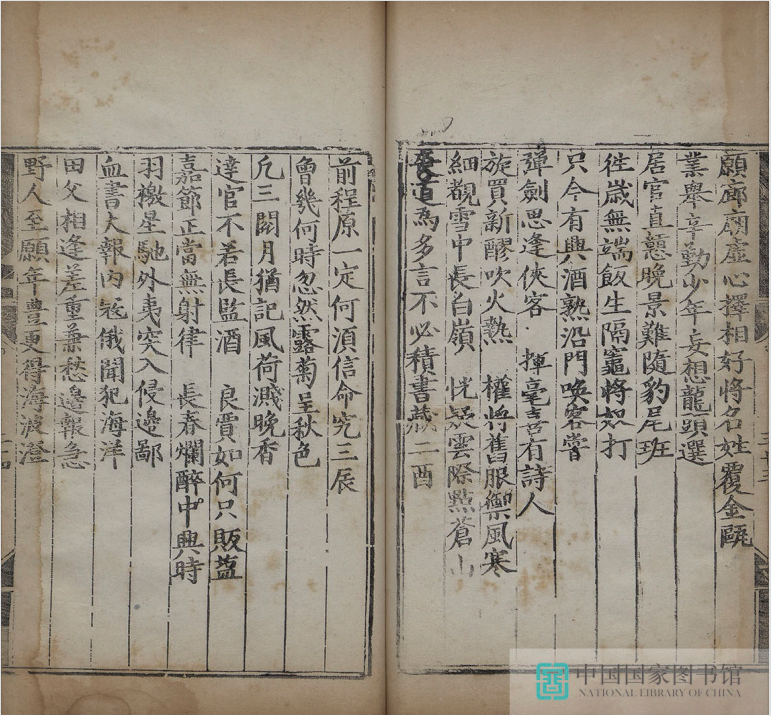 願廊廟虛心擇相好將名姓覆金甌
業舉辛勤少年妄想龍頭選
居官直戇晚景難隨豹尾班
徃歲無端飯生隔竈將如打
只今有興酒熟沿門喚客嘗
彈劍思逢俠客 揮毫喜有詩人
旋買新醪吹火熱 權將舊服禦風寒
細觀雪中長白嶺 恍疑雲際點蒼山
道為多言不必積書藏二酉
三十三
前程原一定何須信命究三辰
曾幾何時忽然露菊呈秋色
凢三閱月猶記風荷濺晚香
達官不若長監酒 良賈如何只販塩
嘉節正當無射律 長春爛醉中興時
羽檄星馳外夷突入侵邊鄙
血書大報内冦俄聞犯海洋
田父相逢差重兼愁邊報急
野人至願年豊更得海波澄
中国国家图书馆
NATIONAL LIBRARY OF CHINA